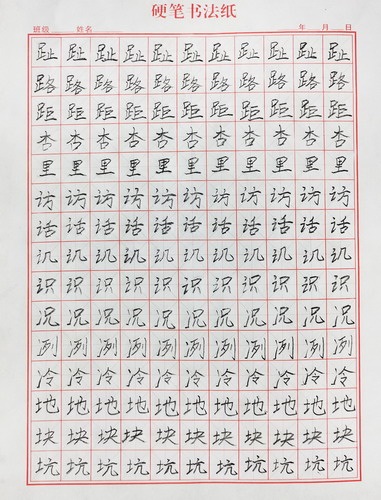 硬笔书法纸
班级 姓名 年 月 日
趾 趾 趾 趾 趾 趾 趾 趾 趾 趾 趾
路 路 路 路 路 路 路 路 路 路 路
距 距 距 距 距 距 距 距 距 距 距
杏 杏 杏 杏 杏 杏 杏 杏 杏 杏 杏
里 里 里 里 里 里 里 里 里 里 里
访 访 访 访 访 访 访 访 访 访 访
话 话 话 话 话 话 话 话 话 话 话
讥 讥 讥 讥 讥 讥 讥 讥 讥 讥 讥
识 识 识 识 识 识 识 识 识 识 识
况 况 况 况 况 况 况 况 况 况 况
冽 冽 冽 冽 冽 冽 冽 冽 冽 冽 冽
冷 冷 冷 冷 冷 冷 冷 冷 冷 冷 冷
地 地 地 地 地 地 地 地 地 地 地
块 块 块 块 块 块 块 块 块 块 块
坑 坑 坑 坑 坑 坑 坑 坑 坑 坑 坑